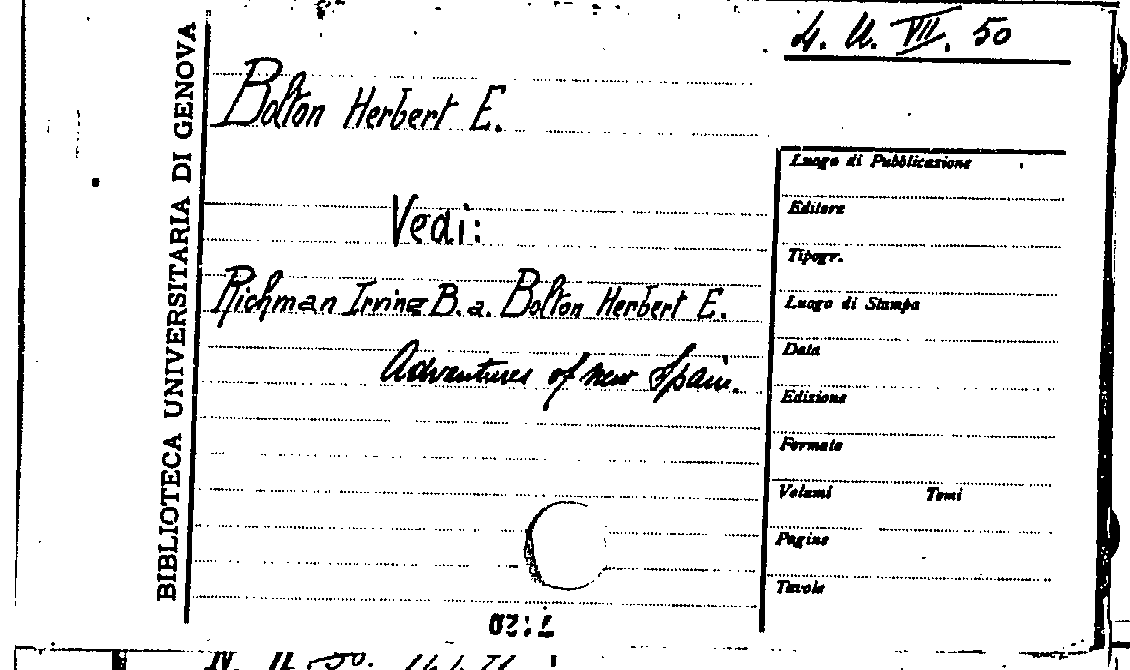 4. U. VII. 50
BIBLIOTECA UNIVERSITARIA DI GENOVA
Bolton Herbert E.
Vedi:
Richman Irving B. a. Bolton Herbert E.
Adventures of new Spain.
Luogo di Pubblicazione
Editore
Tipogr.
Luogo di Stampa
Data
Edizione
Formato
Volumi Tomi
Pagine
Tavole